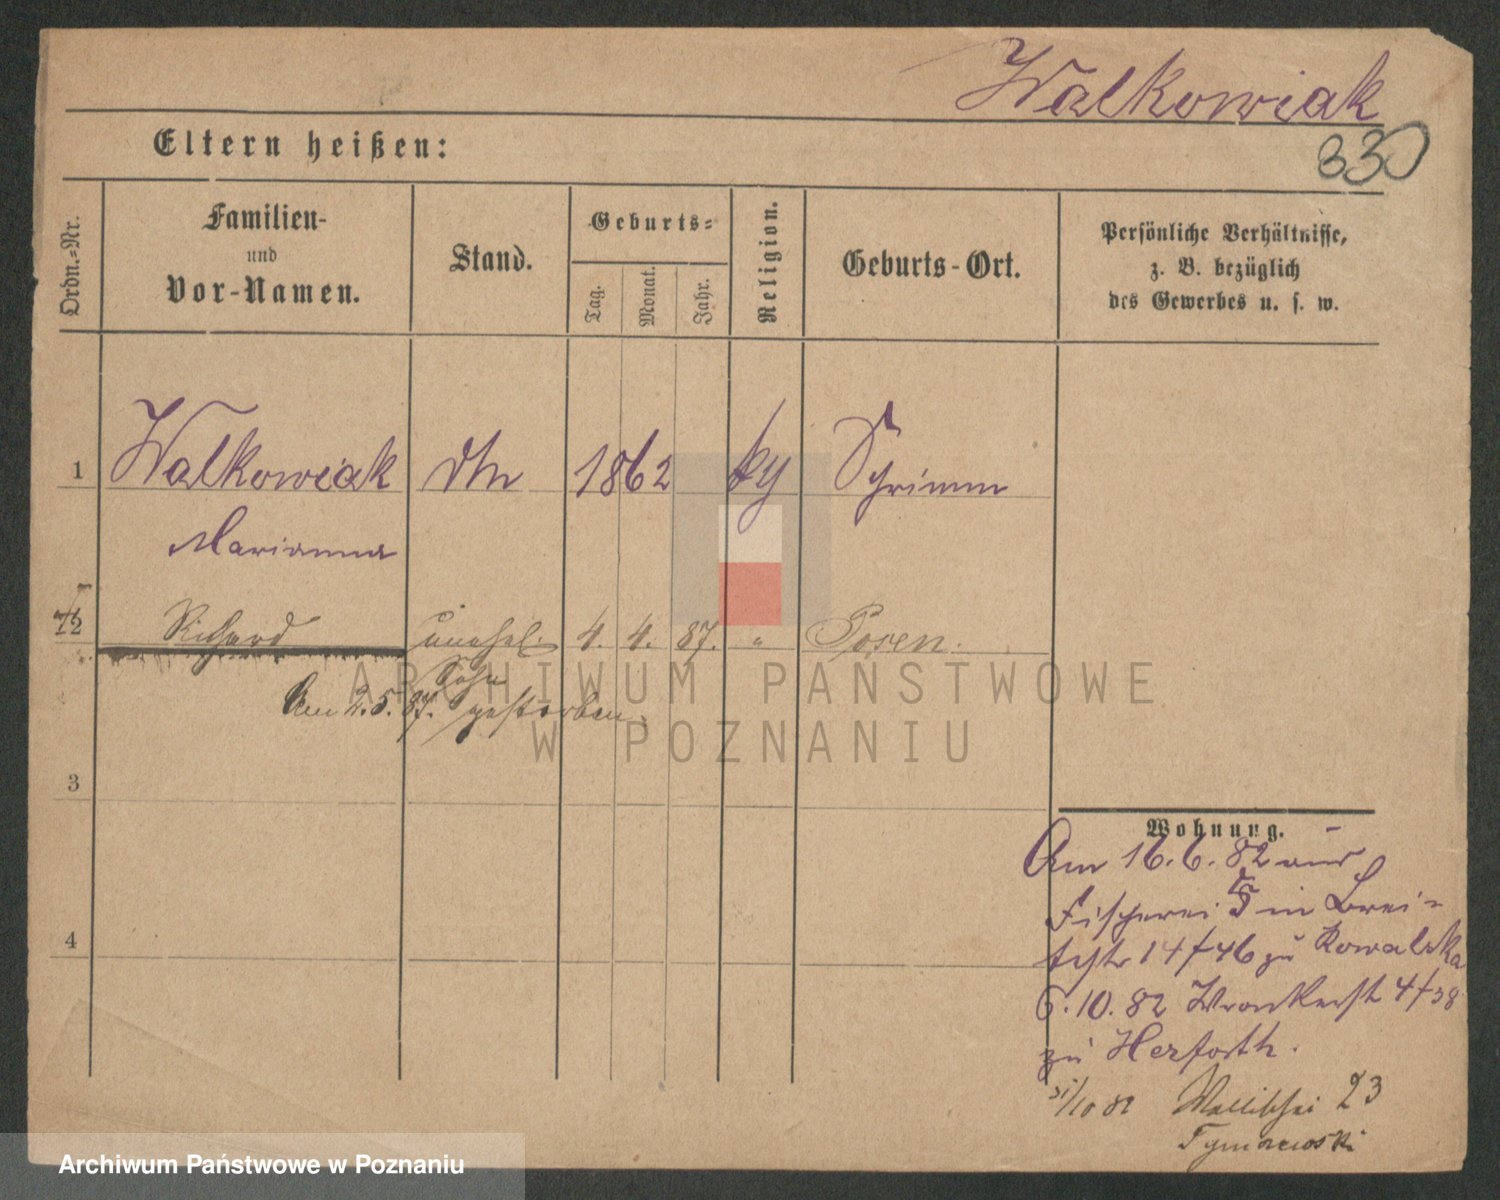 Walkowiak
330
Eltern heißen:
Ordn.-Nr.
Familien-
und
Vor-Namen.
Stand.
Geburts-
Tag.
Monat.
Jahr.
Religion.
Geburts-Ort.
Persönliche Verhältnisse,
z. B. bezüglich
des Gewerbes u. s. w.
1 Walkowiak 1862 Schrimm
Marianna
2 Richard unehel. 4. 4. 87. " Posen.
Sohn
Am 2.5.87. gestorben.
3
4
Wohnung.
Am 16.6.82 aus
Fischerei 5 in Brei-
testr 14/46 zu Kowalska
6.10.82 Wronkerstr 4/38
zu Herforth.
31/10 82 Wallischei 23
Tymanowski
ARCHIWUM PAŃSTWOWE
W POZNANIU
Archiwum Państwowe w Poznaniu